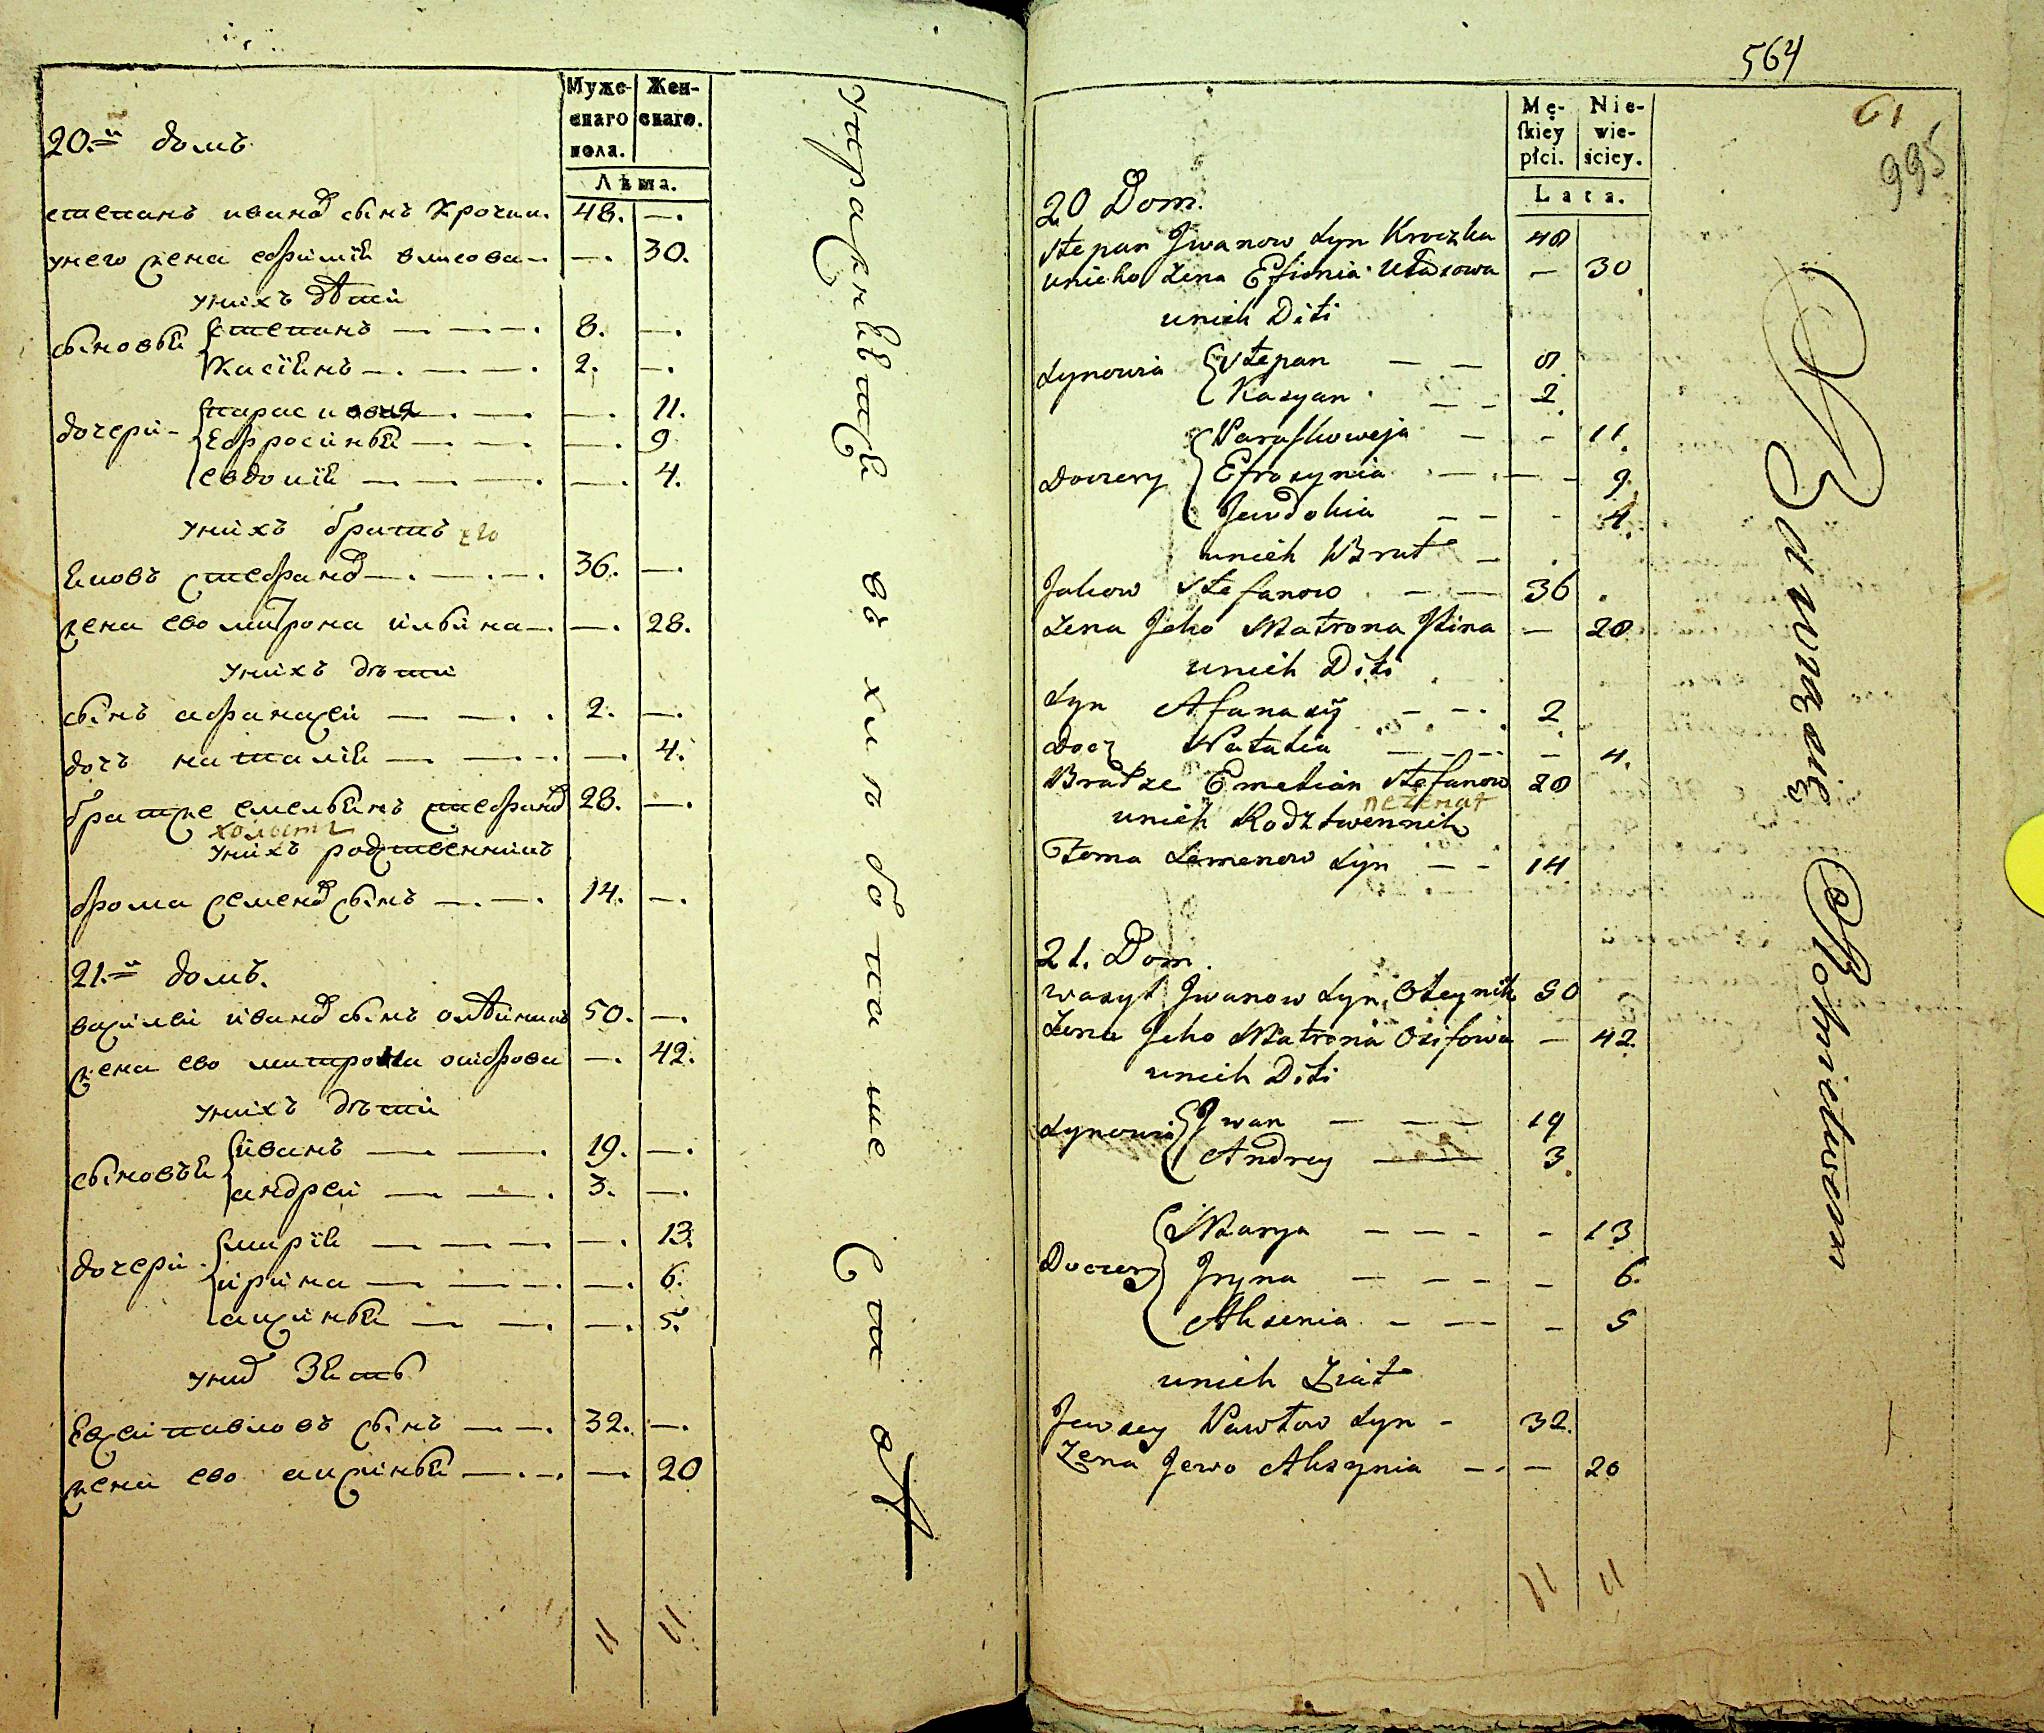 Муже-
скаго
пола.
Жен-
скаго.
Лѣта.
20.й домъ
степанъ иванов сынъ Крочка. 48. —.
унего жена ефимия власова —. —. 30.
унихъ дѣти
сыновья степанъ — — —. 8. —.
Касиянъ —. — —. 2. —.
дочери - парасковия —. — —. 11.
Ефросинья — — —. 9
евдокия — — —. —. 4.
унихъ братъ его
Яковъ стефанов —. —. —. 36. —.
жена ево матрона ильина —. —. 28.
унихъ дѣти
сынъ афанасей — — . . 2. —.
дочь наталия — — - . —. 4.
братже емельянъ стефанов 28. —.
холостъ
унихъ родственникъ
фома семенов сынъ —. —. 14. —.
21.й домъ.
василей иванов сынъ олѣйникъ 50. —.
жена ево матрона осифова —. 42.
унихъ дѣти
сыновья иванъ — —. 19. —.
андрей — —. 3. —.
дочери. мария — — — —. 13.
ирина — — — —. 6.
аксинья — —. —. 5.
унихъ Зять
Евсей павловъ сынъ — —. 32. —.
жена ево аксинья —. —. — 20
11 11
564
61
995
Mę-
skiey
płci.
Nie-
wie-
ściey.
Lata.
20 Dom.
Stepan Jwanow Syn Kroczka 48
unieho Zena Efimia Własowa — 30
unich Diti
Synowia Stepan — — 8.
Kasyan — - 2.
Doczery Paraskoweja — - 11.
Efrosynia — — - 9.
Jewdokia — — - 4.
unich Brat —
Jakow Stefanow — — 36
Zena Jeho Matrona Ilina — 28
unich Diti
Syn Afanasÿ — -. 2
Docz Natalia — — - — 4.
Bratze Emelian Stefanow 28
nezenat
unich Rodztwennik
Foma Semenow Syn — - 14
21. Dom.
Wasyl Jwanow Syn Oleynik 50
Zena Jeho Matrona Osifowa — 42
unich Diti
Synowia Jwan — — — 19
Andrey — — 3.
Doczery Marya — — - - 13
Jryna — — - — 6.
Aksenia - — — 5
unich Ziat
Jewsey Pawłow Syn - 32.
Zena Jewo Aksynia — - — 20
11 11